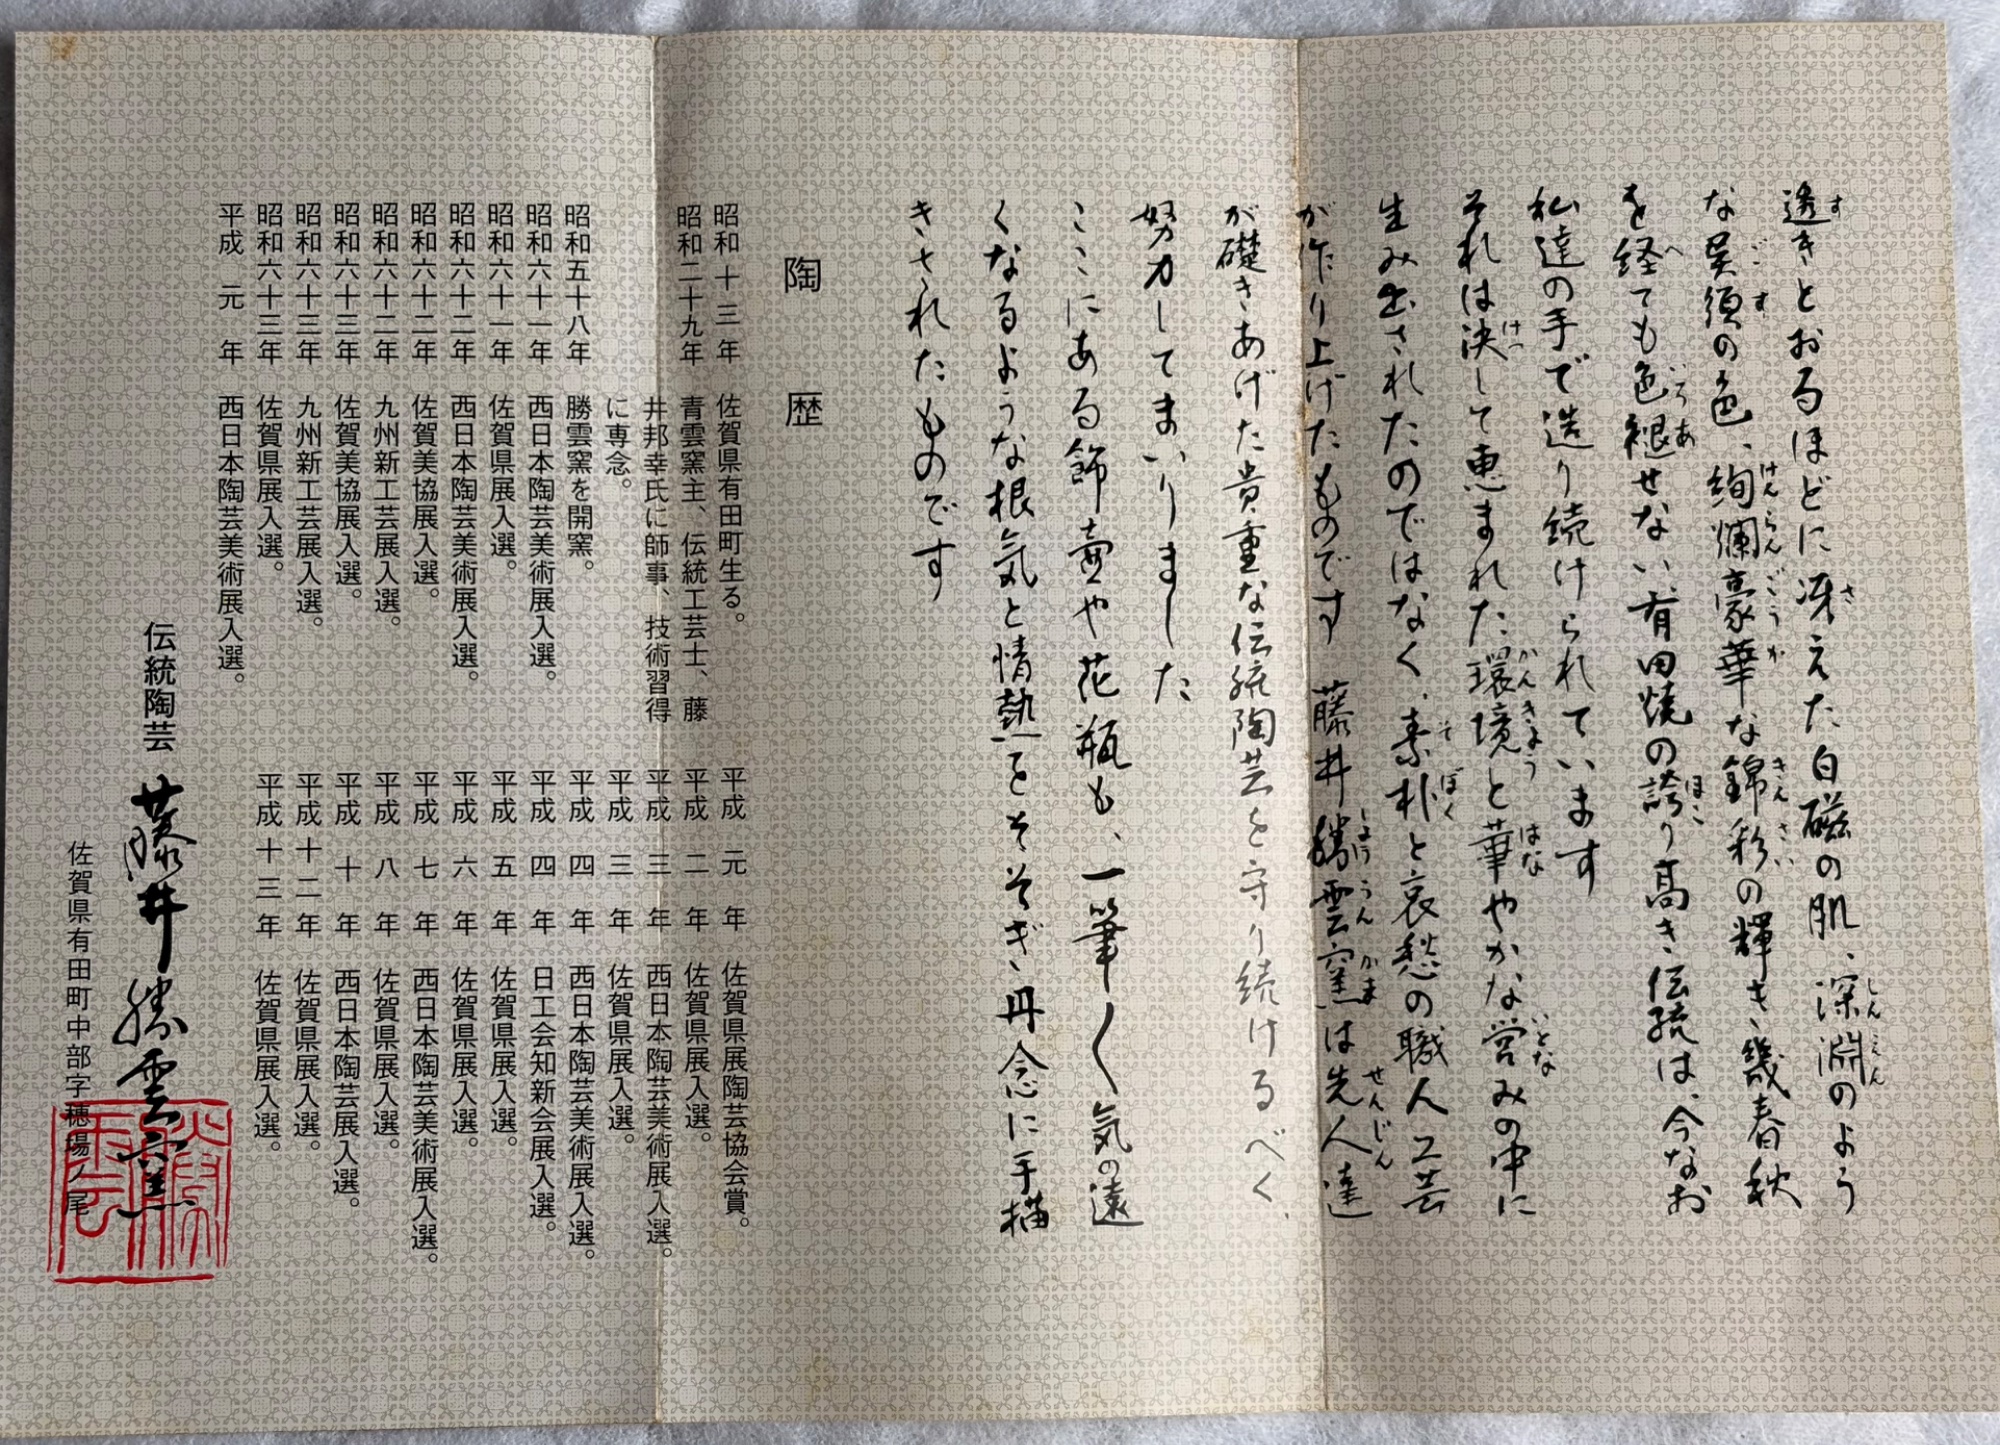 透きとおるほどに冴えた白磁の肌、深淵のよう
な呉須の色、絢爛豪華な錦彩の輝き、幾春秋
を経ても色褪せない、有田焼の誇り高き伝統は、今なお
私達の手で造り続けられています
それは決して恵まれた環境と華やかな営みの中に
生み出されたのではなく、素朴と哀愁の職人工芸
が作り上げたものです 藤井勝雲窯は先人達
が礎きあげた貴重な伝統陶芸を守り続けるべく、
努力してまいりました
ここにある飾壷や花瓶も、一筆〱気の遠
くなるような根気と情熱をそそぎ、丹念に手描
きされたものです
陶歴
昭和十三年 佐賀県有田町生る。
昭和二十九年 青雲窯主、伝統工芸士、藤
井邦幸氏に師事、技術習得
に専念。
昭和五十八年 勝雲窯を開窯。
昭和六十一年 西日本陶芸美術展入選。
昭和六十一年 佐賀県展入選。
昭和六十二年 西日本陶芸美術展入選。
昭和六十二年 佐賀美協展入選。
昭和六十二年 九州新工芸展入選。
昭和六十三年 佐賀美協展入選。
昭和六十三年 九州新工芸展入選。
昭和六十三年 佐賀県展入選。
平成元年 西日本陶芸美術展入選。
平成元年 佐賀県展陶芸協会賞。
平成二年 佐賀県展入選。
平成三年 西日本陶芸美術展入選。
平成三年 佐賀県展入選。
平成四年 西日本陶芸美術展入選。
平成四年 日工会知新会展入選。
平成五年 佐賀県展入選。
平成六年 佐賀県展入選。
平成七年 西日本陶芸美術展入選。
平成八年 佐賀県展入選。
平成十年 西日本陶芸展入選。
平成十二年 佐賀県展入選。
平成十三年 佐賀県展入選。
伝統陶芸 藤井勝雲窯
佐賀県有田町中部字穂場ノ尾